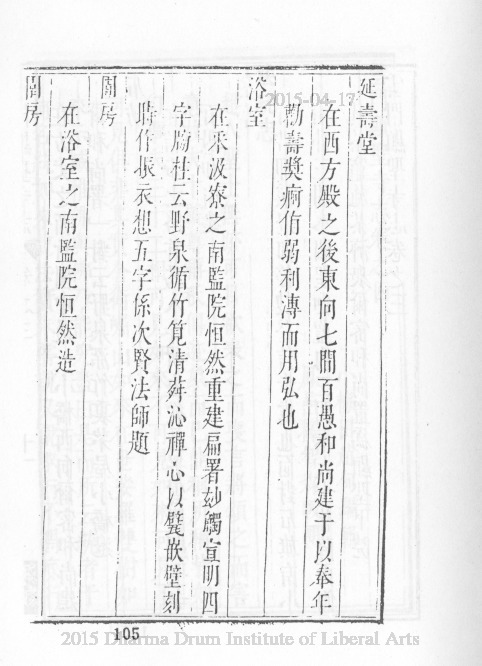 延壽堂
在西方殿之後東向七間百愚和尚建于以奉年
勸壽奬痾侑弱利溥而用弘也
浴室
在釆汲寮之南監院恒然重建扁署妙觸宣明四
字牕柱云野泉循竹筧清舜沁禪心以甓嵌壁刻
時作振衣想五字係次賢法師題
圊房
在浴室之南監院恒然造
圊房
105
2015-04-17
2015 Dharma Drum Institute of Liberal Arts